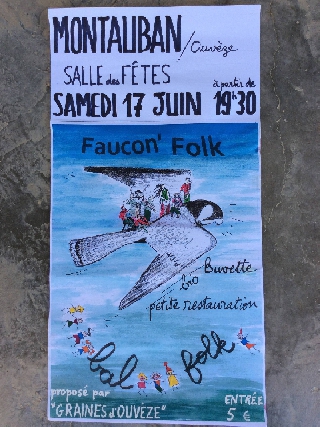 MONTAUBAN/Ouvèze
SALLE des FÊTES
à partir de
SAMEDI 17 JUIN 19h30
Faucon' Folk
bio Buvette
petite restauration
bal folk
proposé par
"GRAINES d'OUVÈZE"
ENTRÉE
5 €